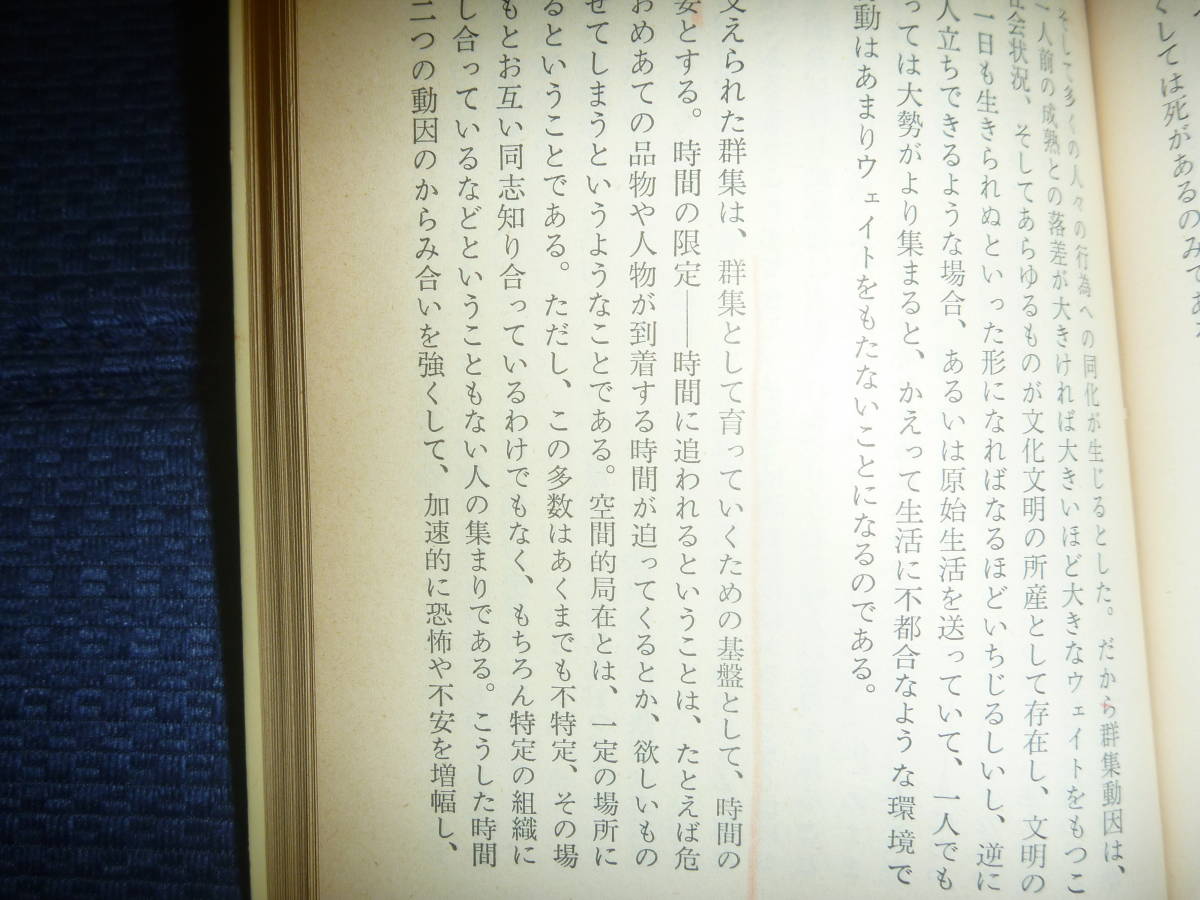 くしては死があるのみであ
そして多くの人々の行為への同化が生じるとした。だから群集動因は、
一人前の成熟との落差が大きければ大きいほど大きなウェイトをもつこ
会状況、そしてあらゆるものが文化文明の所産として存在し、文明の
一日も生きられぬといった形になればなるほどいちじるしいし、逆に
人立ちできるような場合、あるいは原始生活を送っていて、一人でも
っては大勢がより集まると、かえって生活に不都合なような環境で
動はあまりウェイトをもたないことになるのである。
支えられた群集は、群集として育っていくための基盤として、時間の
要とする。時間の限定——時間に追われるということは、たとえば危
おめあての品物や人物が到着する時間が迫ってくるとか、欲しいもの
せてしまうというようなことである。空間的局在とは、一定の場所に
るということである。ただし、この多数はあくまでも不特定、その場
もとお互い同志知り合っているわけでもなく、もちろん特定の組織に
し合っているなどということもない人の集まりである。こうした時間
二つの動因のからみ合いを強くして、加速的に恐怖や不安を増幅し、